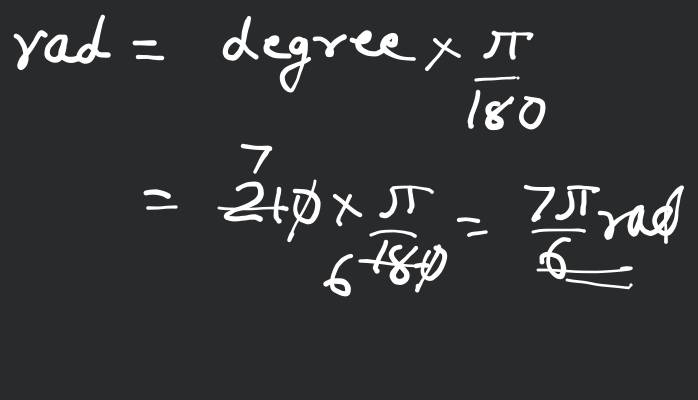 rad = degree × π/180
= 7 210 × π/180 6 = 7π/6 rad